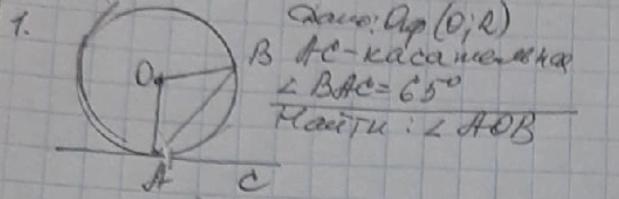 1.
Дано: Окр (O; R)
AC - касательная
∠ BAC = 65°
Найти: ∠ AOB
O
B
A
C